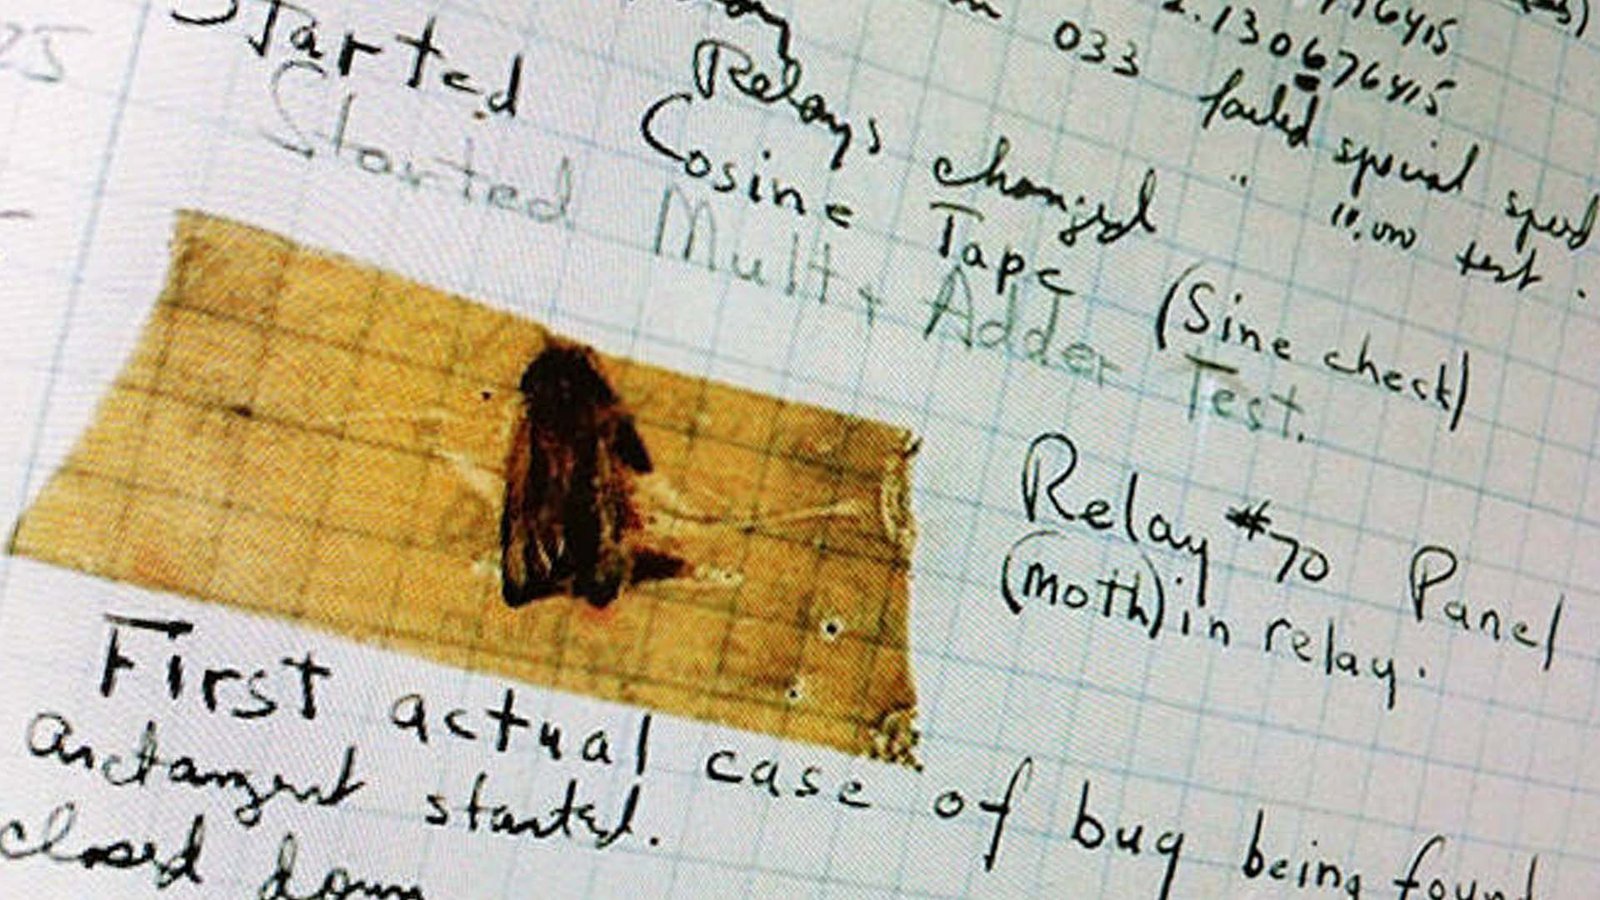 2.130676415
033 failed special speed
Relays changed " 11,000 test.
Started Cosine Tape (Sine check)
Started Mult + Adder Test.
Relay #70 Panel
(moth) in relay.
First actual case of bug being found
arctangent started.
closed down